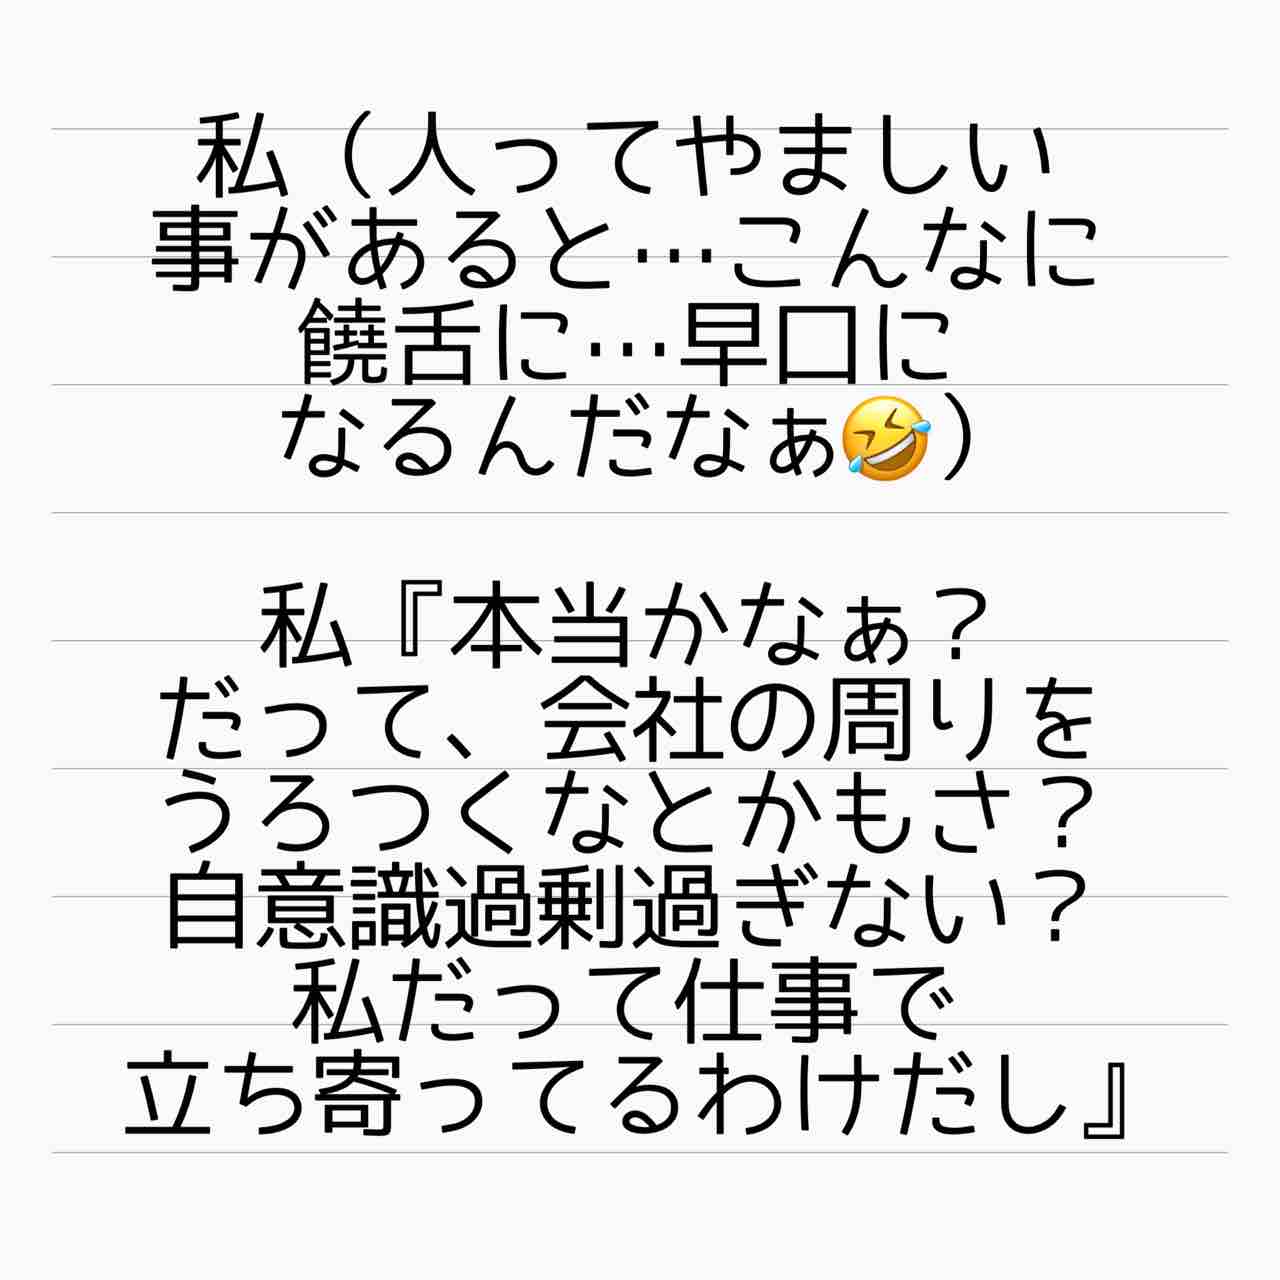 私（人ってやましい
事があると…こんなに
饒舌に…早口に
なるんだなぁ🤣）
私『本当かなぁ？
だって、会社の周りを
うろつくなとかもさ？
自意識過剰過ぎない？
私だって仕事で
立ち寄ってるわけだし』